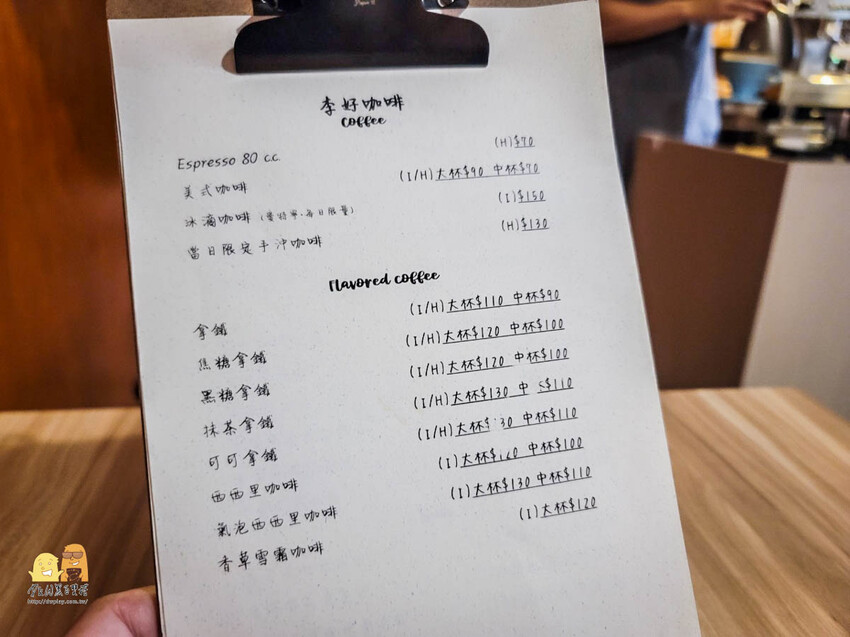 李好咖啡
coffee
Espresso 80 c.c. (H)$70
美式咖啡 (I/H)大杯$90 中杯$70
冰滴咖啡 (每日限量) (I)$150
當日限定手沖咖啡 (H)$130
Flavored coffee
拿鐵 (I/H)大杯$110 中杯$90
焦糖拿鐵 (I/H)大杯$120 中杯$100
黑糖拿鐵 (I/H)大杯$120 中杯$100
抹茶拿鐵 (I/H)大杯$130 中 $110
可可拿鐵 (I/H)大杯$ 30 中杯$110
西西里咖啡 (I)大杯 中杯$100
氣泡西西里咖啡 (I)大杯$130 中杯$110
香草雪霜咖啡 (I)大杯$120
http://dwplay.com.tw/